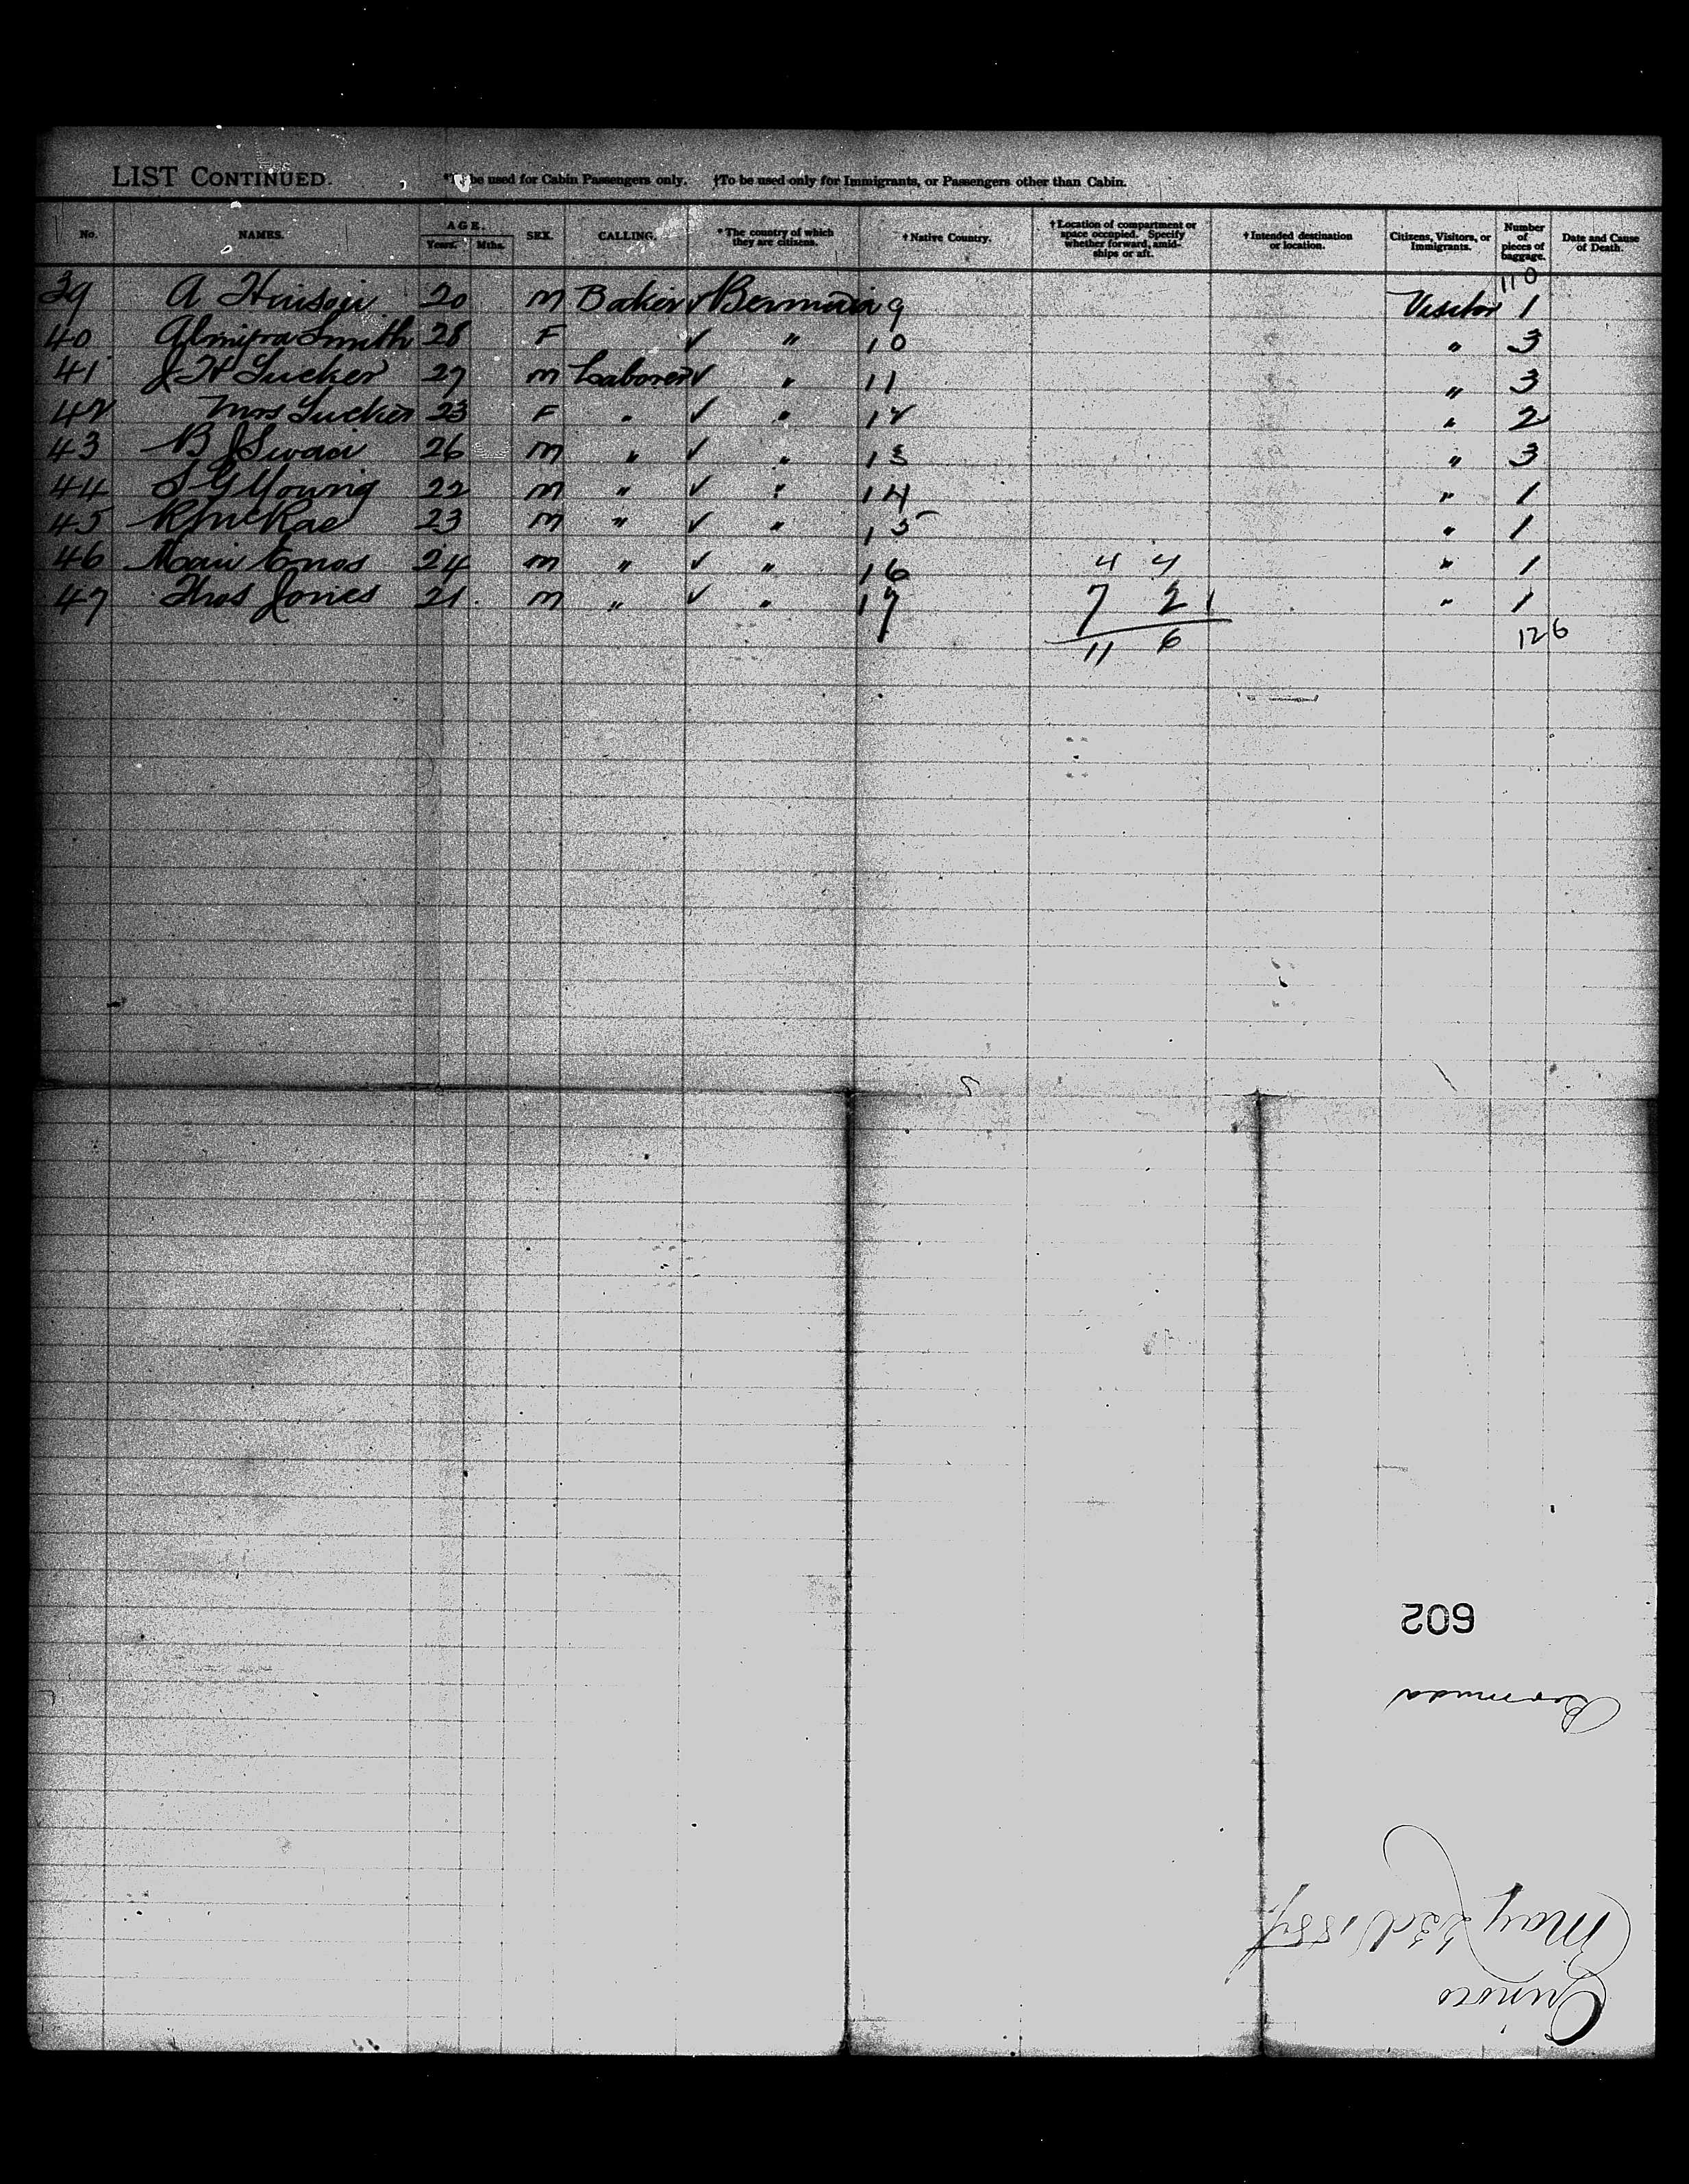 LIST CONTINUED. *To be used for Cabin Passengers only. †To be used only for Immigrants, or Passengers other than Cabin.
No. NAMES. AGE. Years. Mths. SEX. CALLING. *The country of which they are citizens. †Native Country. †Location of compartment or space occupied. Specify whether forward, amidships or aft. †Intended destination or location. Citizens, Visitors, or Immigrants. Number of pieces of baggage. Date and Cause of Death.
110
39 A Hinson 20 m Baker ✓ Bermuda 9 Visitor 1
40 Almira Smith 28 F ✓ " 10 " 3
41 J H Tucker 27 m Laborer ✓ " 11 " 3
42 Mrs Tucker 23 F " ✓ " 12 " 2
43 B J Swan 26 m " ✓ " 13 " 3
44 S G Young 22 m " ✓ " 14 " 1
45 R McRae 23 m " ✓ " 15 " 1
46 Enos 24 m " ✓ " 16 4 4 " 1
47 Thos Jones 21 m " ✓ " 17 7 2 1 " 1
11 6 126
602
Bermuda
May 23d 1887
Orinoco